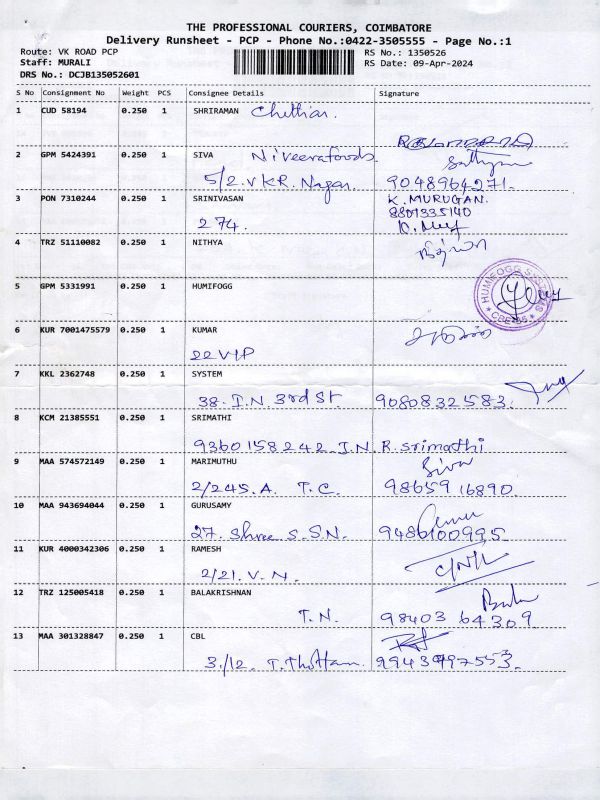 THE PROFESSIONAL COURIERS, COIMBATORE
Delivery Runsheet - PCP - Phone No.:0422-3505555 - Page No.:1
Route: VK ROAD PCP
RS No.: 1350526
Staff: MURALI
RS Date: 09-Apr-2024
DRS No.: DCJB135052601
S No Consignment No Weight PCS Consignee Details Signature
1 CUD 58194 0.250 1 SHRIRAMAN Chettiar.
2 GPM 5424391 0.250 1 SIVA Niveerafoods. Sathya
5/2. V.K.R. Nagar. 9048964271.
3 PON 7310244 0.250 1 SRINIVASAN K. MURUGAN.
8801335140
274.
4 TRZ 51110082 0.250 1 NITHYA நித்யா
5 GPM 5331991 0.250 1 HUMIFOGG
HUMIFOGG SYSTEMS
6 KUR 7001475579 0.250 1 KUMAR
22 VIP
7 KKL 2362748 0.250 1 SYSTEM
38. I.N. 3rd St. 9080832583.
8 KCM 21385551 0.250 1 SRIMATHI
9360158242 I.N. R. Srimathi
9 MAA 574572149 0.250 1 MARIMUTHU Siva
2/245.A. T.C. 9865916890.
10 MAA 943694044 0.250 1 GURUSAMY
27. Shree S.S.N. 9486100995.
11 KUR 4000342306 0.250 1 RAMESH
2/21. V.N.
12 TRZ 125005418 0.250 1 BALAKRISHNAN
T.N. 98403 64309
13 MAA 301328847 0.250 1 CBL
3./12. T.Thottam. 9943797553.